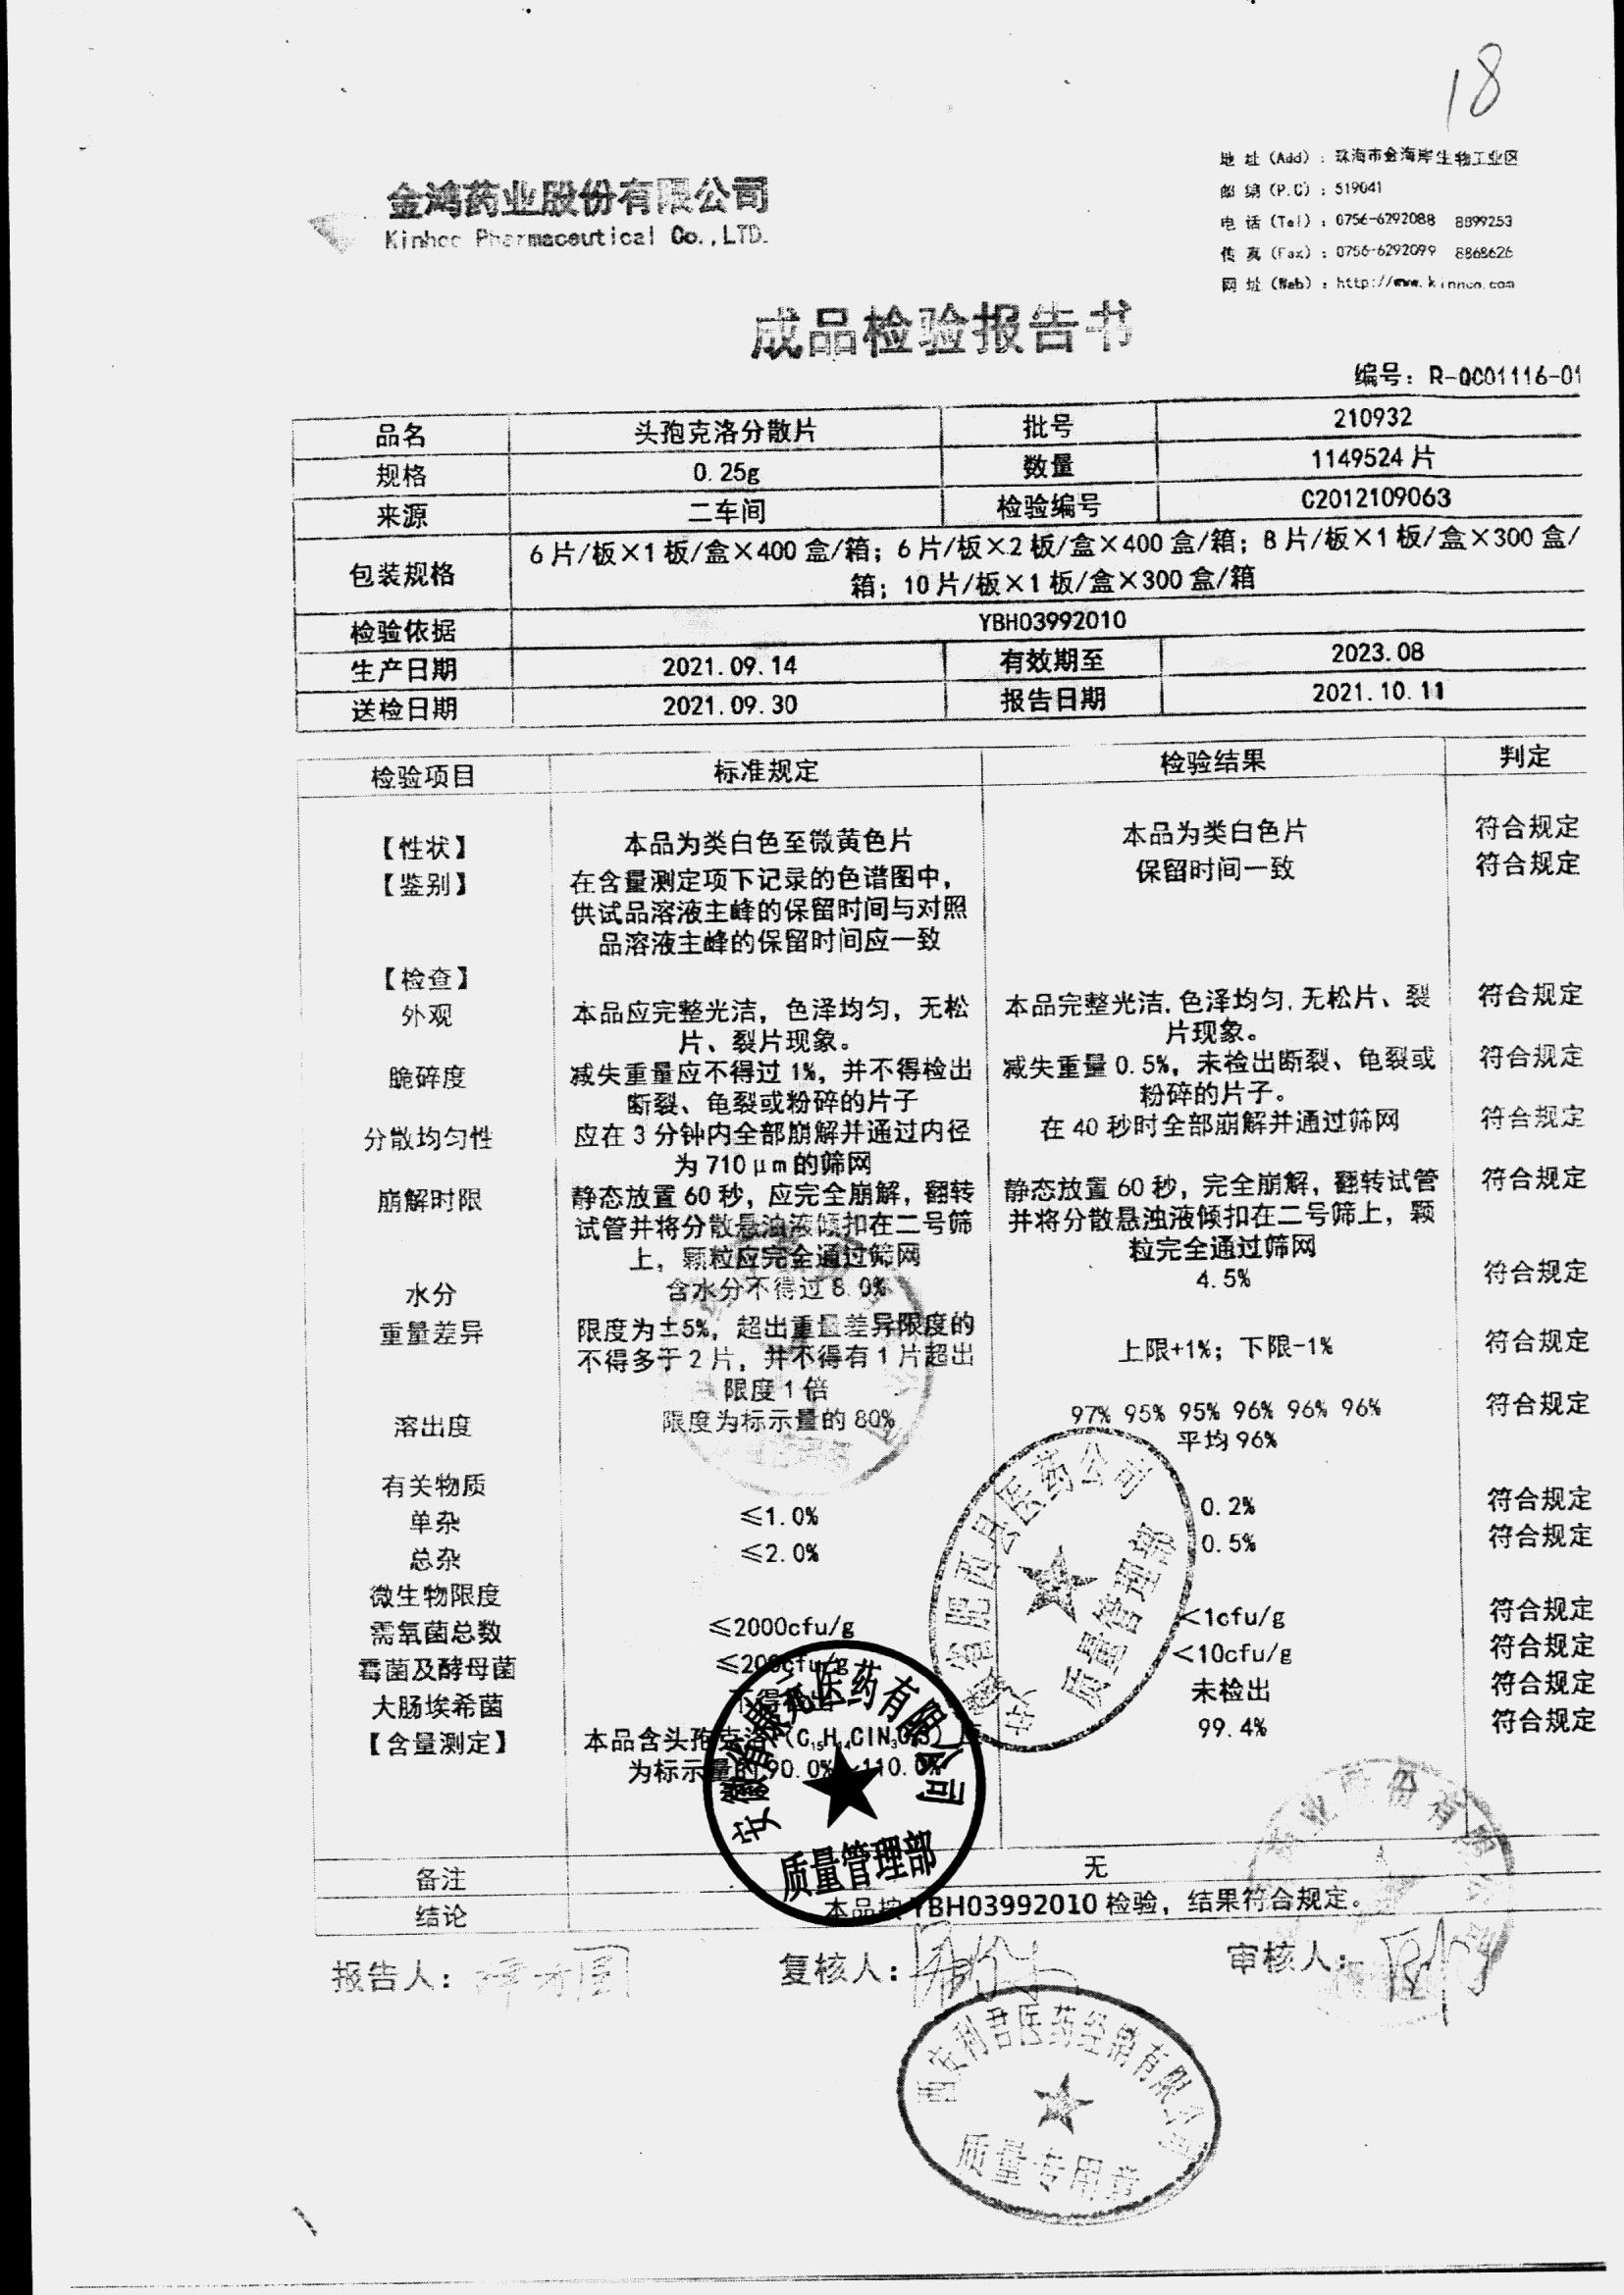 18
金鸿药业股份有限公司
Pharmaceutical Co.,LTD.
地 址 (Add) : 珠海市金海岸生物工业区
邮 编 (P.C) : 519041
电 话 (Tel) : 0756-6292088 8899253
传 真 (Fax) : 0756-6292099 8868626
网 址 (Web) :
成品检验报告书
编号: R-QC01116-01
品名 头孢克洛分散片 批号 210932
规格 0.25g 数量 1149524 片
来源 二车间 检验编号 C2012109063
包装规格 6 片/板×1 板/盒×400 盒/箱; 6 片/板×2 板/盒×400 盒/箱; 8 片/板×1 板/盒×300 盒/
箱; 10 片/板×1 板/盒×300 盒/箱
检验依据 YBH03992010
生产日期 2021.09.14 有效期至 2023.08
送检日期 2021.09.30 报告日期 2021.10.11
检验项目 标准规定 检验结果 判定
【性状】 本品为类白色至微黄色片 本品为类白色片 符合规定
【鉴别】 在含量测定项下记录的色谱图中, 保留时间一致 符合规定
供试品溶液主峰的保留时间与对照
品溶液主峰的保留时间应一致
【检查】
外观 本品应完整光洁, 色泽均匀, 无松 本品完整光洁, 色泽均匀, 无松片、裂 符合规定
片、裂片现象。 片现象。
脆碎度 减失重量应不得过 1%, 并不得检出 减失重量 0.5%, 未检出断裂、龟裂或 符合规定
断裂、龟裂或粉碎的片子 粉碎的片子。
分散均匀性 应在 3 分钟内全部崩解并通过内径 在 40 秒时全部崩解并通过筛网 符合规定
为 710μm 的筛网
崩解时限 静态放置 60 秒, 应完全崩解, 翻转 静态放置 60 秒, 完全崩解, 翻转试管 符合规定
试管并将分散悬浊液倾扣在二号筛 并将分散悬浊液倾扣在二号筛上, 颗
上, 颗粒应完全通过筛网 粒完全通过筛网
水分 含水分不得过 8.0% 4.5% 符合规定
重量差异 限度为±5%, 超出重量差异限度的 上限+1%; 下限-1% 符合规定
不得多于 2 片, 并不得有 1 片超出
限度 1 倍
溶出度 限度为标示量的 80% 97% 95% 95% 96% 96% 96% 符合规定
平均 96%
有关物质
单杂 ≤1.0% 0.2% 符合规定
总杂 ≤2.0% 0.5% 符合规定
微生物限度
需氧菌总数 ≤2000cfu/g <1cfu/g 符合规定
霉菌及酵母菌 ≤200cfu/g <10cfu/g 符合规定
大肠埃希菌 未检出 符合规定
【含量测定】 本品含头孢克洛 99.4% 符合规定
为标示量的 90.0%~110.0%
备注 无
结论 本品按 YBH03992010 检验, 结果符合规定。
报告人: 复核人: 审核人:
安徽省肥西县医药公司
质量管理部
医药有限公司
质量管理部
西安利君医药经销有限公司
质量专用章